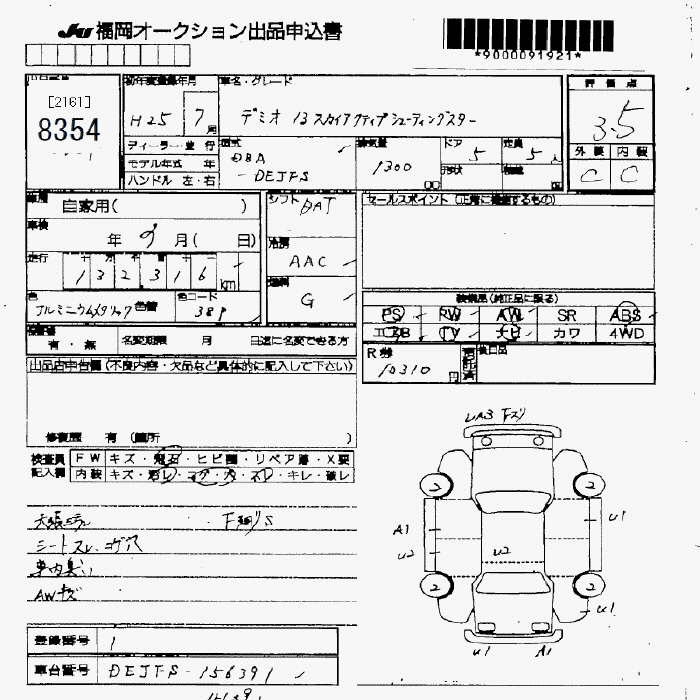 JU 福岡オークション出品申込書
*9000091921*
初年度登録年月 車名・グレード 評価点
[2161]
8354
H25 7月 デミオ 13スカイアクティブシューティングスター 3.5
ディーラー・並行 型式 排気量 ドア 定員 外装 内装
モデル年式 年 DBA 1300 5 5人 C C
ハンドル 左・右 -DEJFS CC 形状
車歴 自家用( ) シフト DAT セールスポイント(正常に機能するもの)
車検 年 9月( 日) 冷房 AAC
走行 十万千百十 132316 km 燃料 G
色 アルミニウムメタリック 色替 色コード 38P
装備品(純正品に限る)
PS PW AW SR ABS
エアB TV ナビ カワ 4WD
有・無 名変期限 月 日迄に名変できる方
R券 10310 円 後日品
出品店申告欄(不良内容・欠品など具体的に記入して下さい)
修復歴 有(箇所 )
検査員 FW キズ・飛石・ヒビ・リペア跡・X要
記入欄 内装 キズ・汚レ・コゲ・穴・スレ・キレ・破レ
シートスレ・コゲ穴
車内臭い
AWキズ
UA3
2 2
A1 U1
U2 U2
2 2
U1
U1 A1
登録番号 1
車台番号 DEJFS-156391